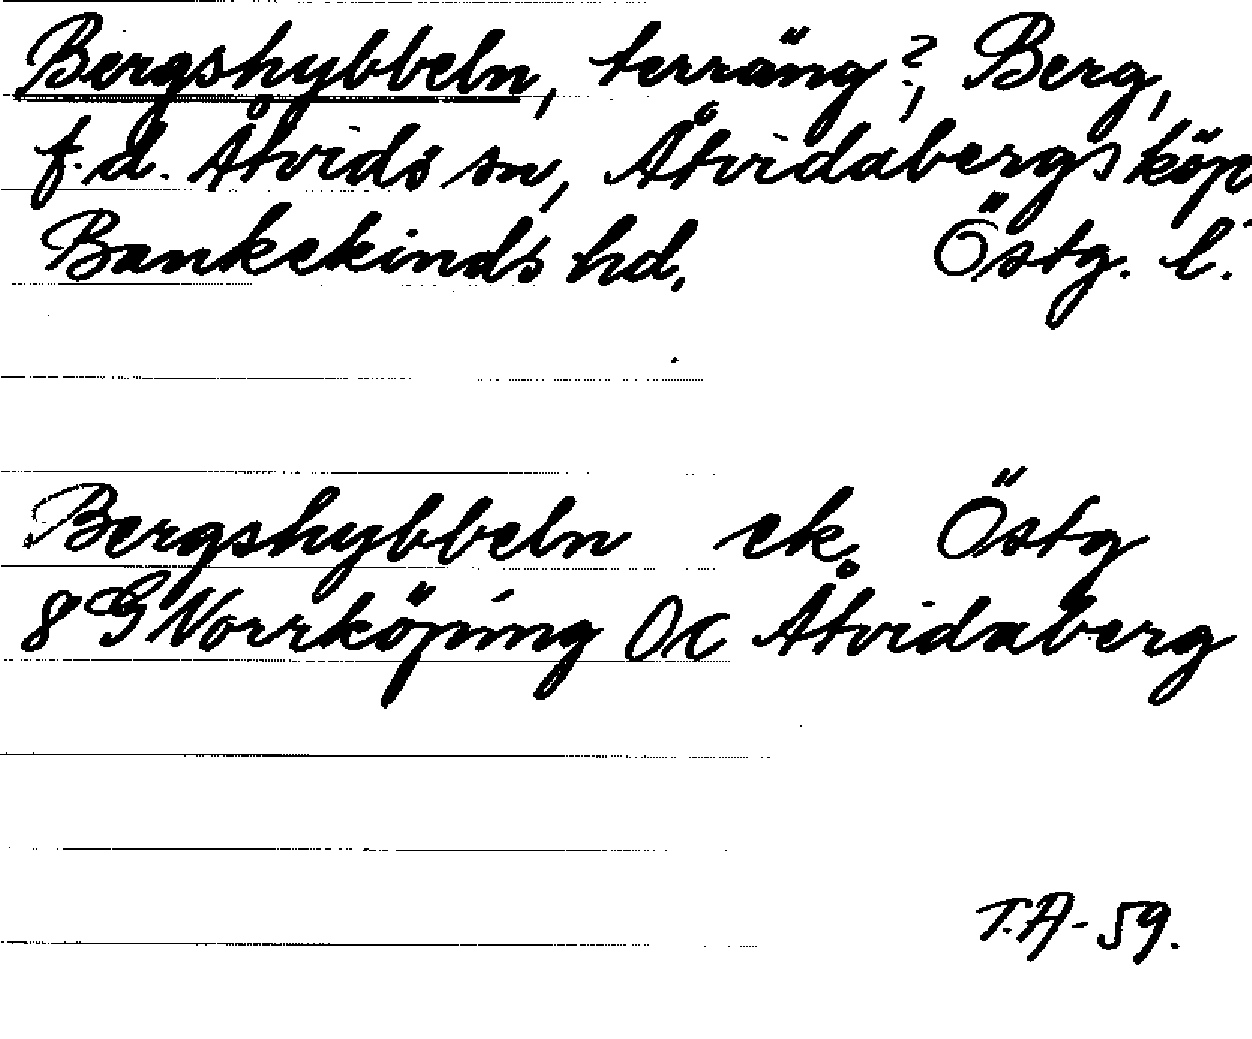 Bergshybbeln, terräng?, Berg,
f.d. Åtvids sn, Åtvidabergs köp
Bankekinds hd. Östg. l.
Bergshybbeln ek. Östg
8 G Norrköping Oc Åtvidaberg
T.A-59.